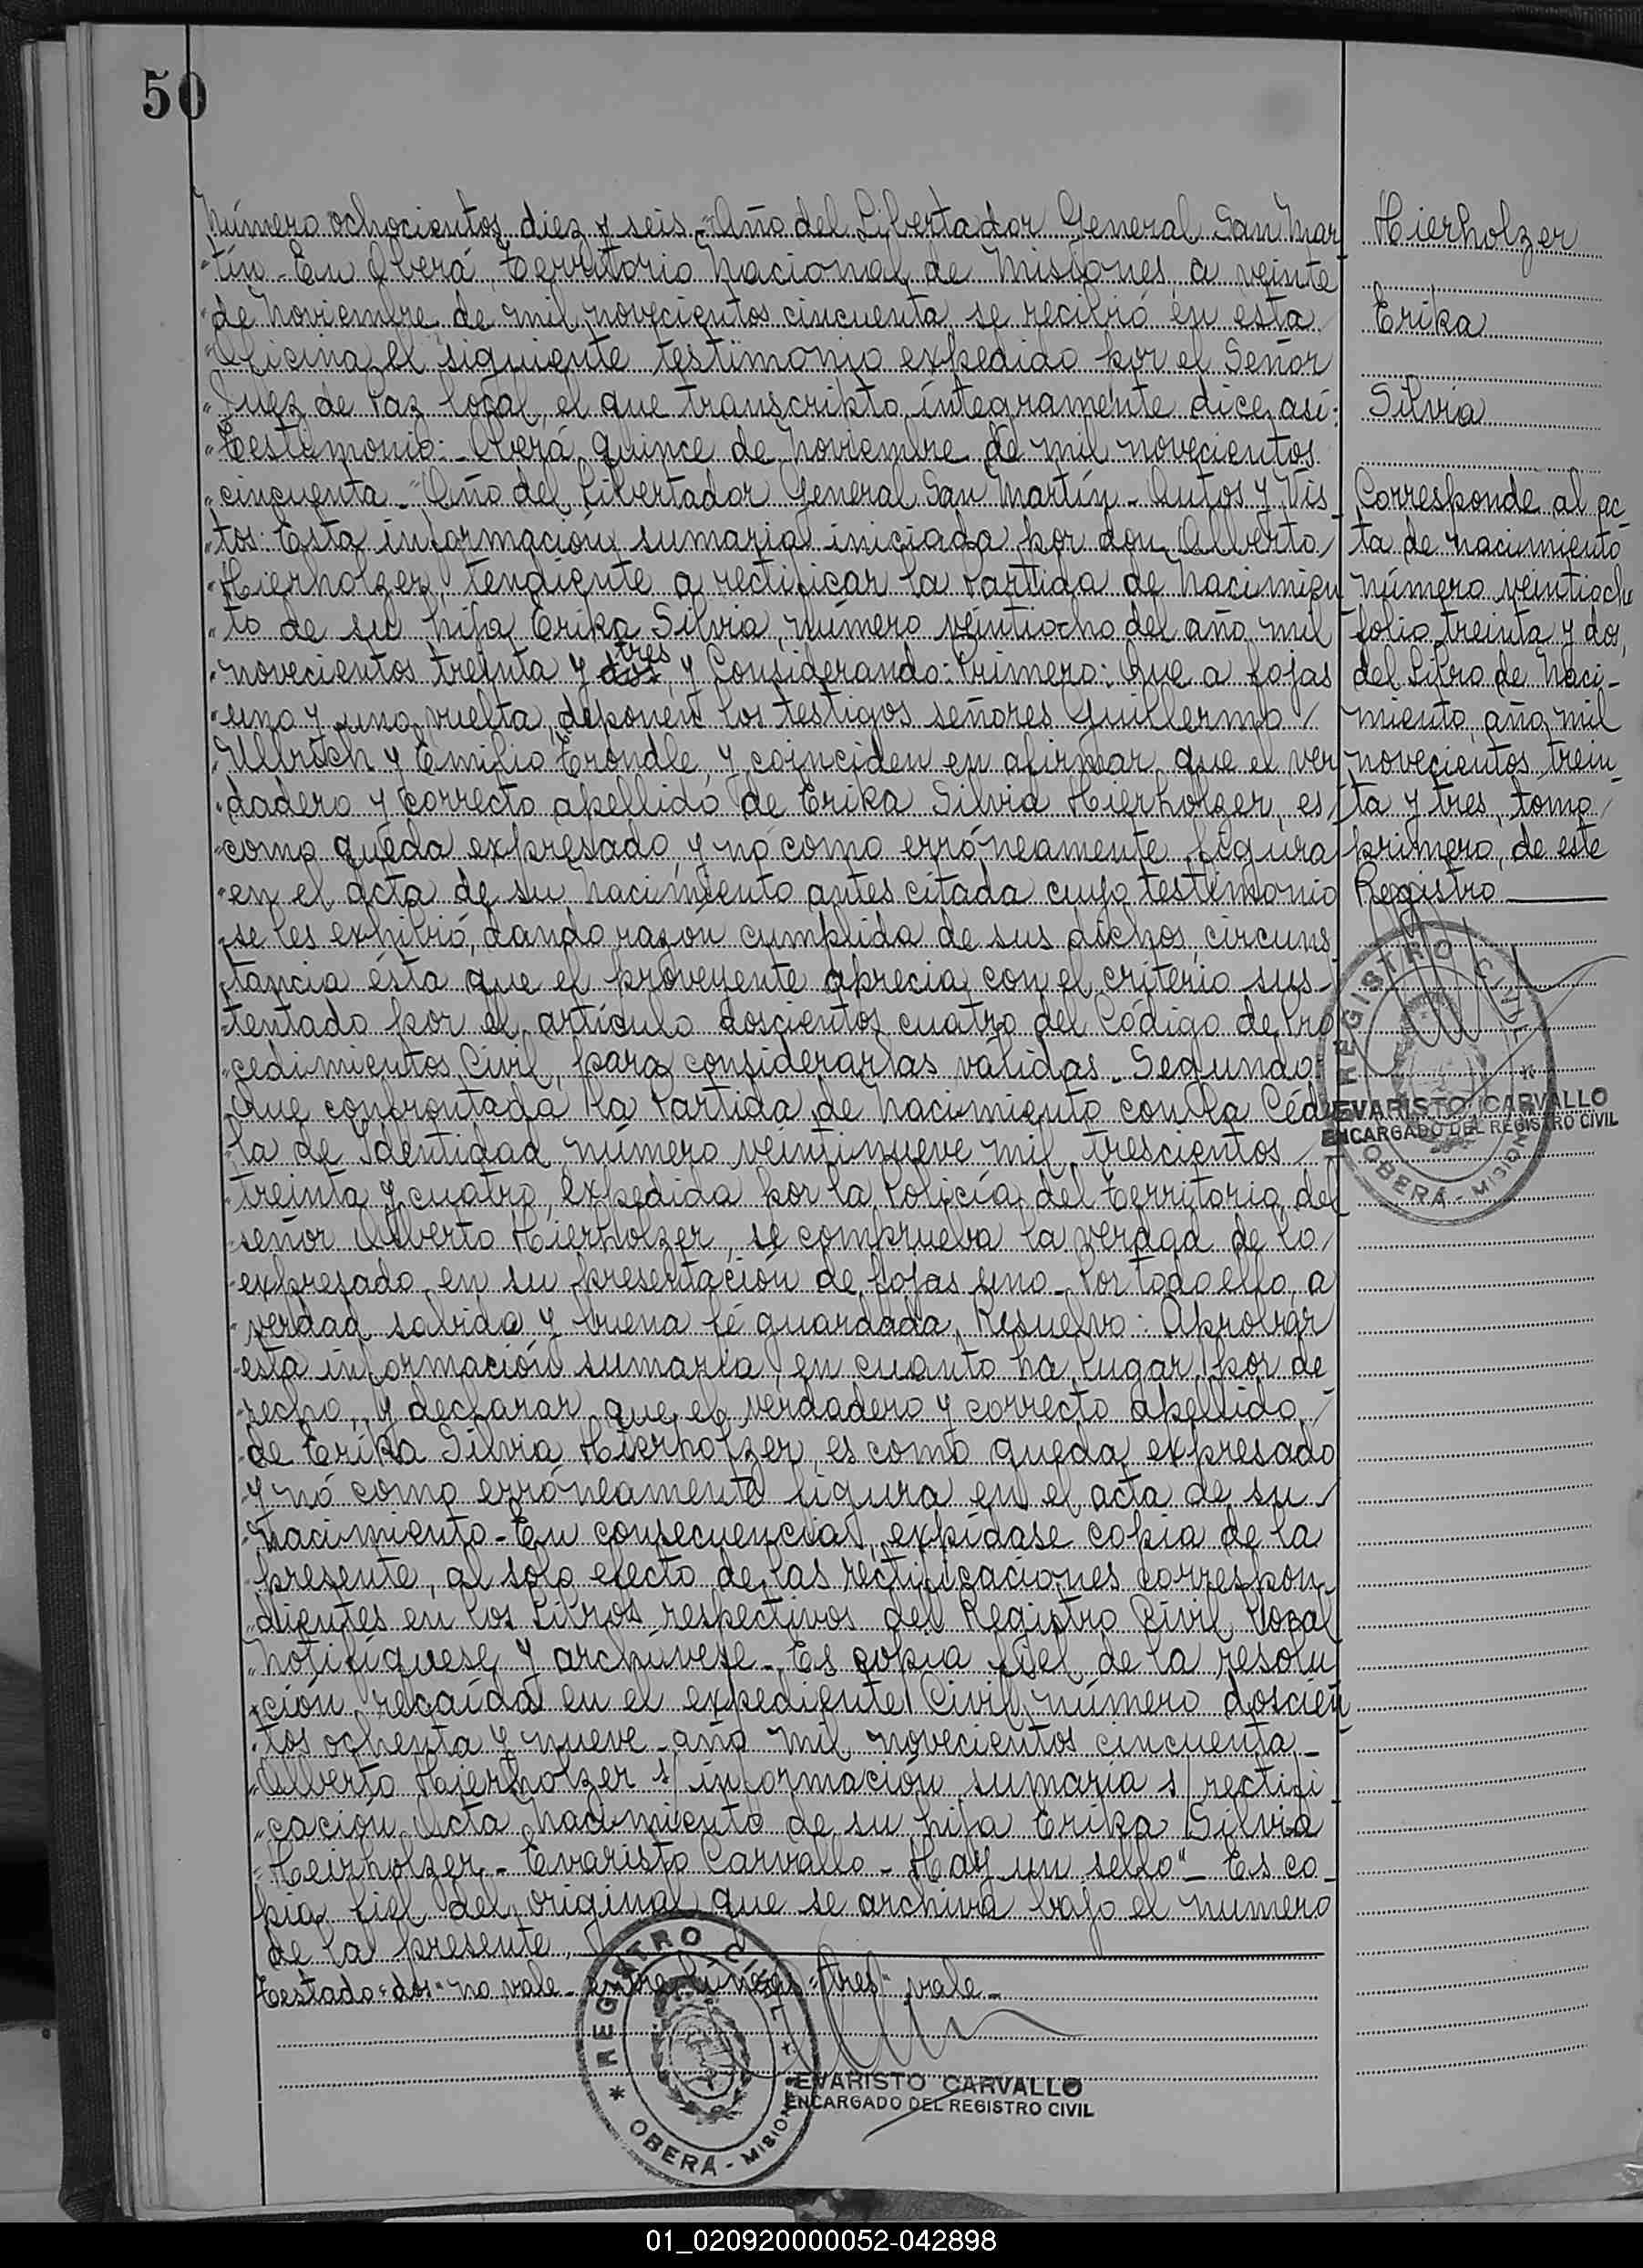 50
Número ochocientos diez y seis.- Año del Libertador General San Mar-
"tín.- En Oberá, Territorio Nacional de Misiones, a veinte
"de Noviembre de mil novecientos cincuenta, se recibió en esta
"Oficina el siguiente testimonio expedido por el Señor
"Juez de Paz local, el que transcripto íntegramente dice así:
"Testimonio:- Oberá, quince de Noviembre de mil novecientos
"cincuenta.- Año del Libertador General San Martín.- Autos y Vis-
"tos: Esta información sumaria iniciada por don Alberto
"Hierholzer, tendiente a rectificar la Partida de Nacimien
"to de su hija Erika Silvia, número veintiocho del año mil
tres
"novecientos treinta y dos, y Considerando: Primero: Que a fojas
"uno y uno vuelta, deponen los testigos señores Guillermo
"Ullrich y Emilio Tröndle, y coinciden en afirmar que el ver
"dadero y correcto apellido de Erika Silvia Hierholzer, es
"como queda expresado, y nó como erróneamente figura
"en el acta de su nacimiento antes citada cuyo testimonio
"se les exhibió, dando razón cumplida de sus dichos circuns
"tancia ésta que el proveyente aprecia con el criterio sus-
"tentado por el artículo doscientos cuatro del Código de Pro
"cedimientos Civil, para considerarlas válidas.- Segundo:
"Que confrontada la Partida de Nacimiento con la Cédu
"la de Identidad número veintinueve mil trescientos
"treinta y cuatro, expedida por la Policía del Territorio, del
"señor Alberto Hierholzer, se comprueba la verdad de lo
"expresado en su presentación de fojas uno.- Por todo ello, a
"verdad sabida y buena fé guardada, Resuelvo: Aprobar
"esta información sumaria, en cuanto ha lugar por de
"recho, y declarar que el verdadero y correcto apellido
"de Erika Silvia Hierholzer, es como queda expresado
"y nó como erróneamente figura en el acta de su
"nacimiento.- En consecuencia, expídase copia de la
"presente, al solo efecto de las rectificaciones correspon-
"dientes en los Libros respectivos del Registro Civil local
"Notifíquese y archívese.- Es copia fiel de la resolu
"ción recaída en el expediente Civil número doscien
"tos ochenta y nueve - año mil novecientos cincuenta -
"Alberto Hierholzer s/ información sumaria s/ rectifi-
"cación Acta Nacimiento de su hija Erika Silvia
"Heirholzer.- Evaristo Carvallo - Hay un sello".- Es co-
pia fiel del original que se archiva bajo el numero
de la presente.
Testado: "dos" no vale.- entre líneas: "tres" vale.-
REGISTRO CIVIL
* OBERÁ - MISIONES *
EVARISTO CARVALLO
ENCARGADO DEL REGISTRO CIVIL
Hierholzer
Erika
Silvia
Corresponde al ac-
ta de nacimiento
número veintiocho
folio treinta y dos,
del Libro de Naci-
miento, año mil
novecientos trein-
ta y tres, tomo
primero, de este
Registro
REGISTRO CIVIL *
OBERÁ - MISIONES
EVARISTO CARVALLO
ENCARGADO DEL REGISTRO CIVIL
01_020920000052-042898